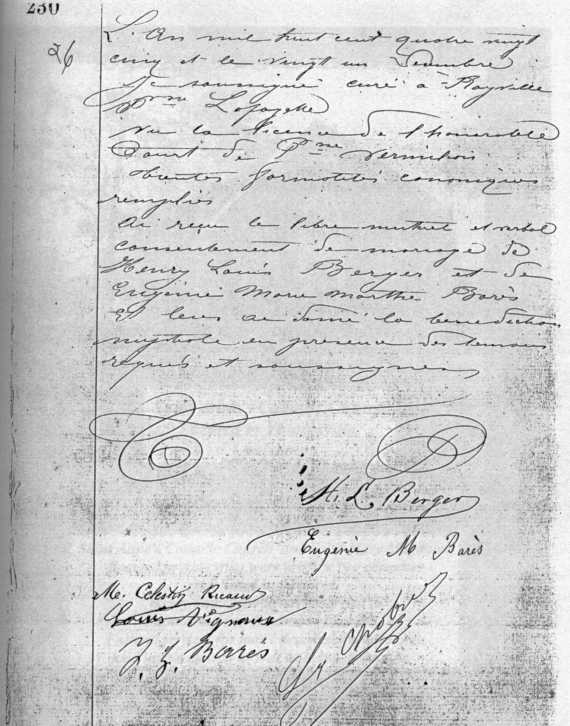 230
26
L'An mil huit cent quatre vingt
cinq et le vingt un
Je soussigné curé à Rayville
Psse Lafayette
Vu la licence de l'honorable
Court de Psse Vermilion
toutes formalités canoniques
remplies
Ai reçu le libre mutuel et verbal
consentement de mariage de
Henry Louis Berger et de
Eugénie Marie Marthe Barès
Et leur ai donné la benediction
nuptiale en presence des temoins
requis et soussignés
H. L. Berger
Eugénie M Barès
M. Ricaud
Louis Vignaux
J. J. Barès